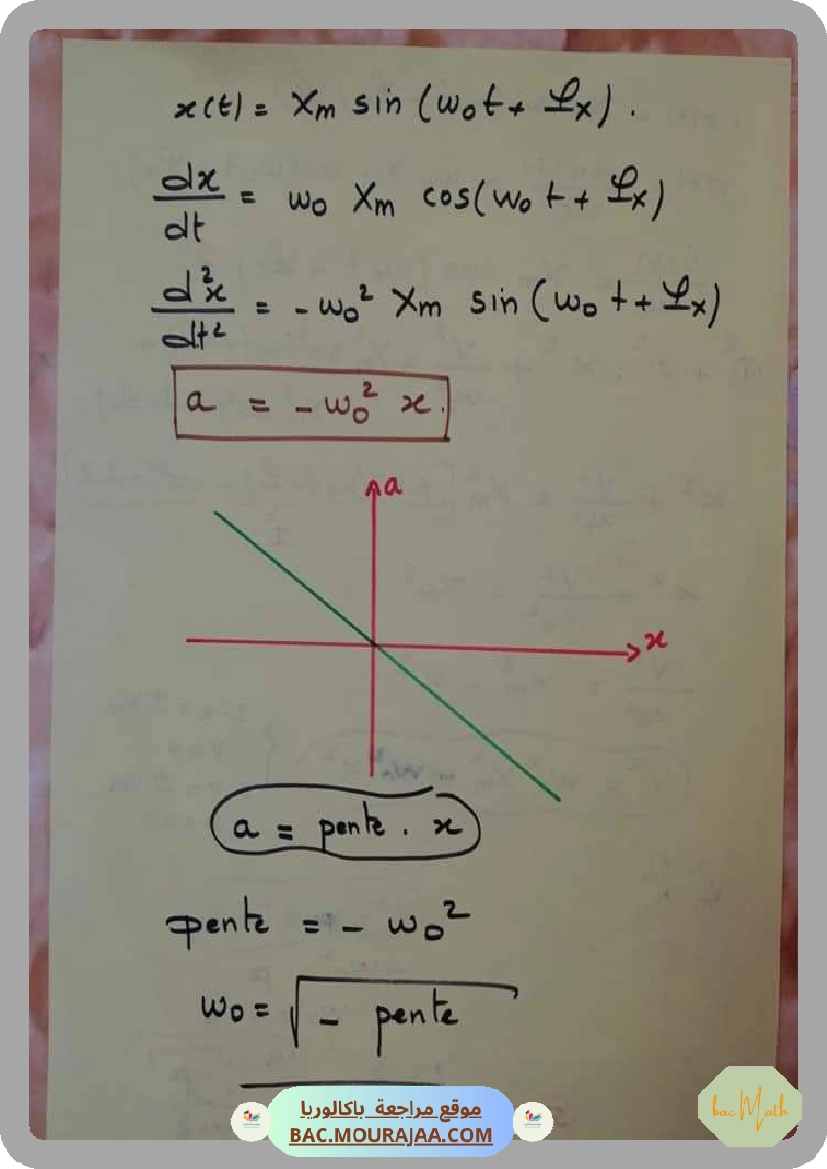 x(t) = Xm sin (ω0t + φx).
dx/dt = ω0 Xm cos(ω0 t + φx)
d²x/dt² = - ω0² Xm sin (ω0 t + φx)
a = - ω0² x.
a
x
a = pente . x
pente = - ω0²
ω0 = √- pente
موقع مراجعة باكالوريا
BAC.MOURAJAA.COM
bac Math